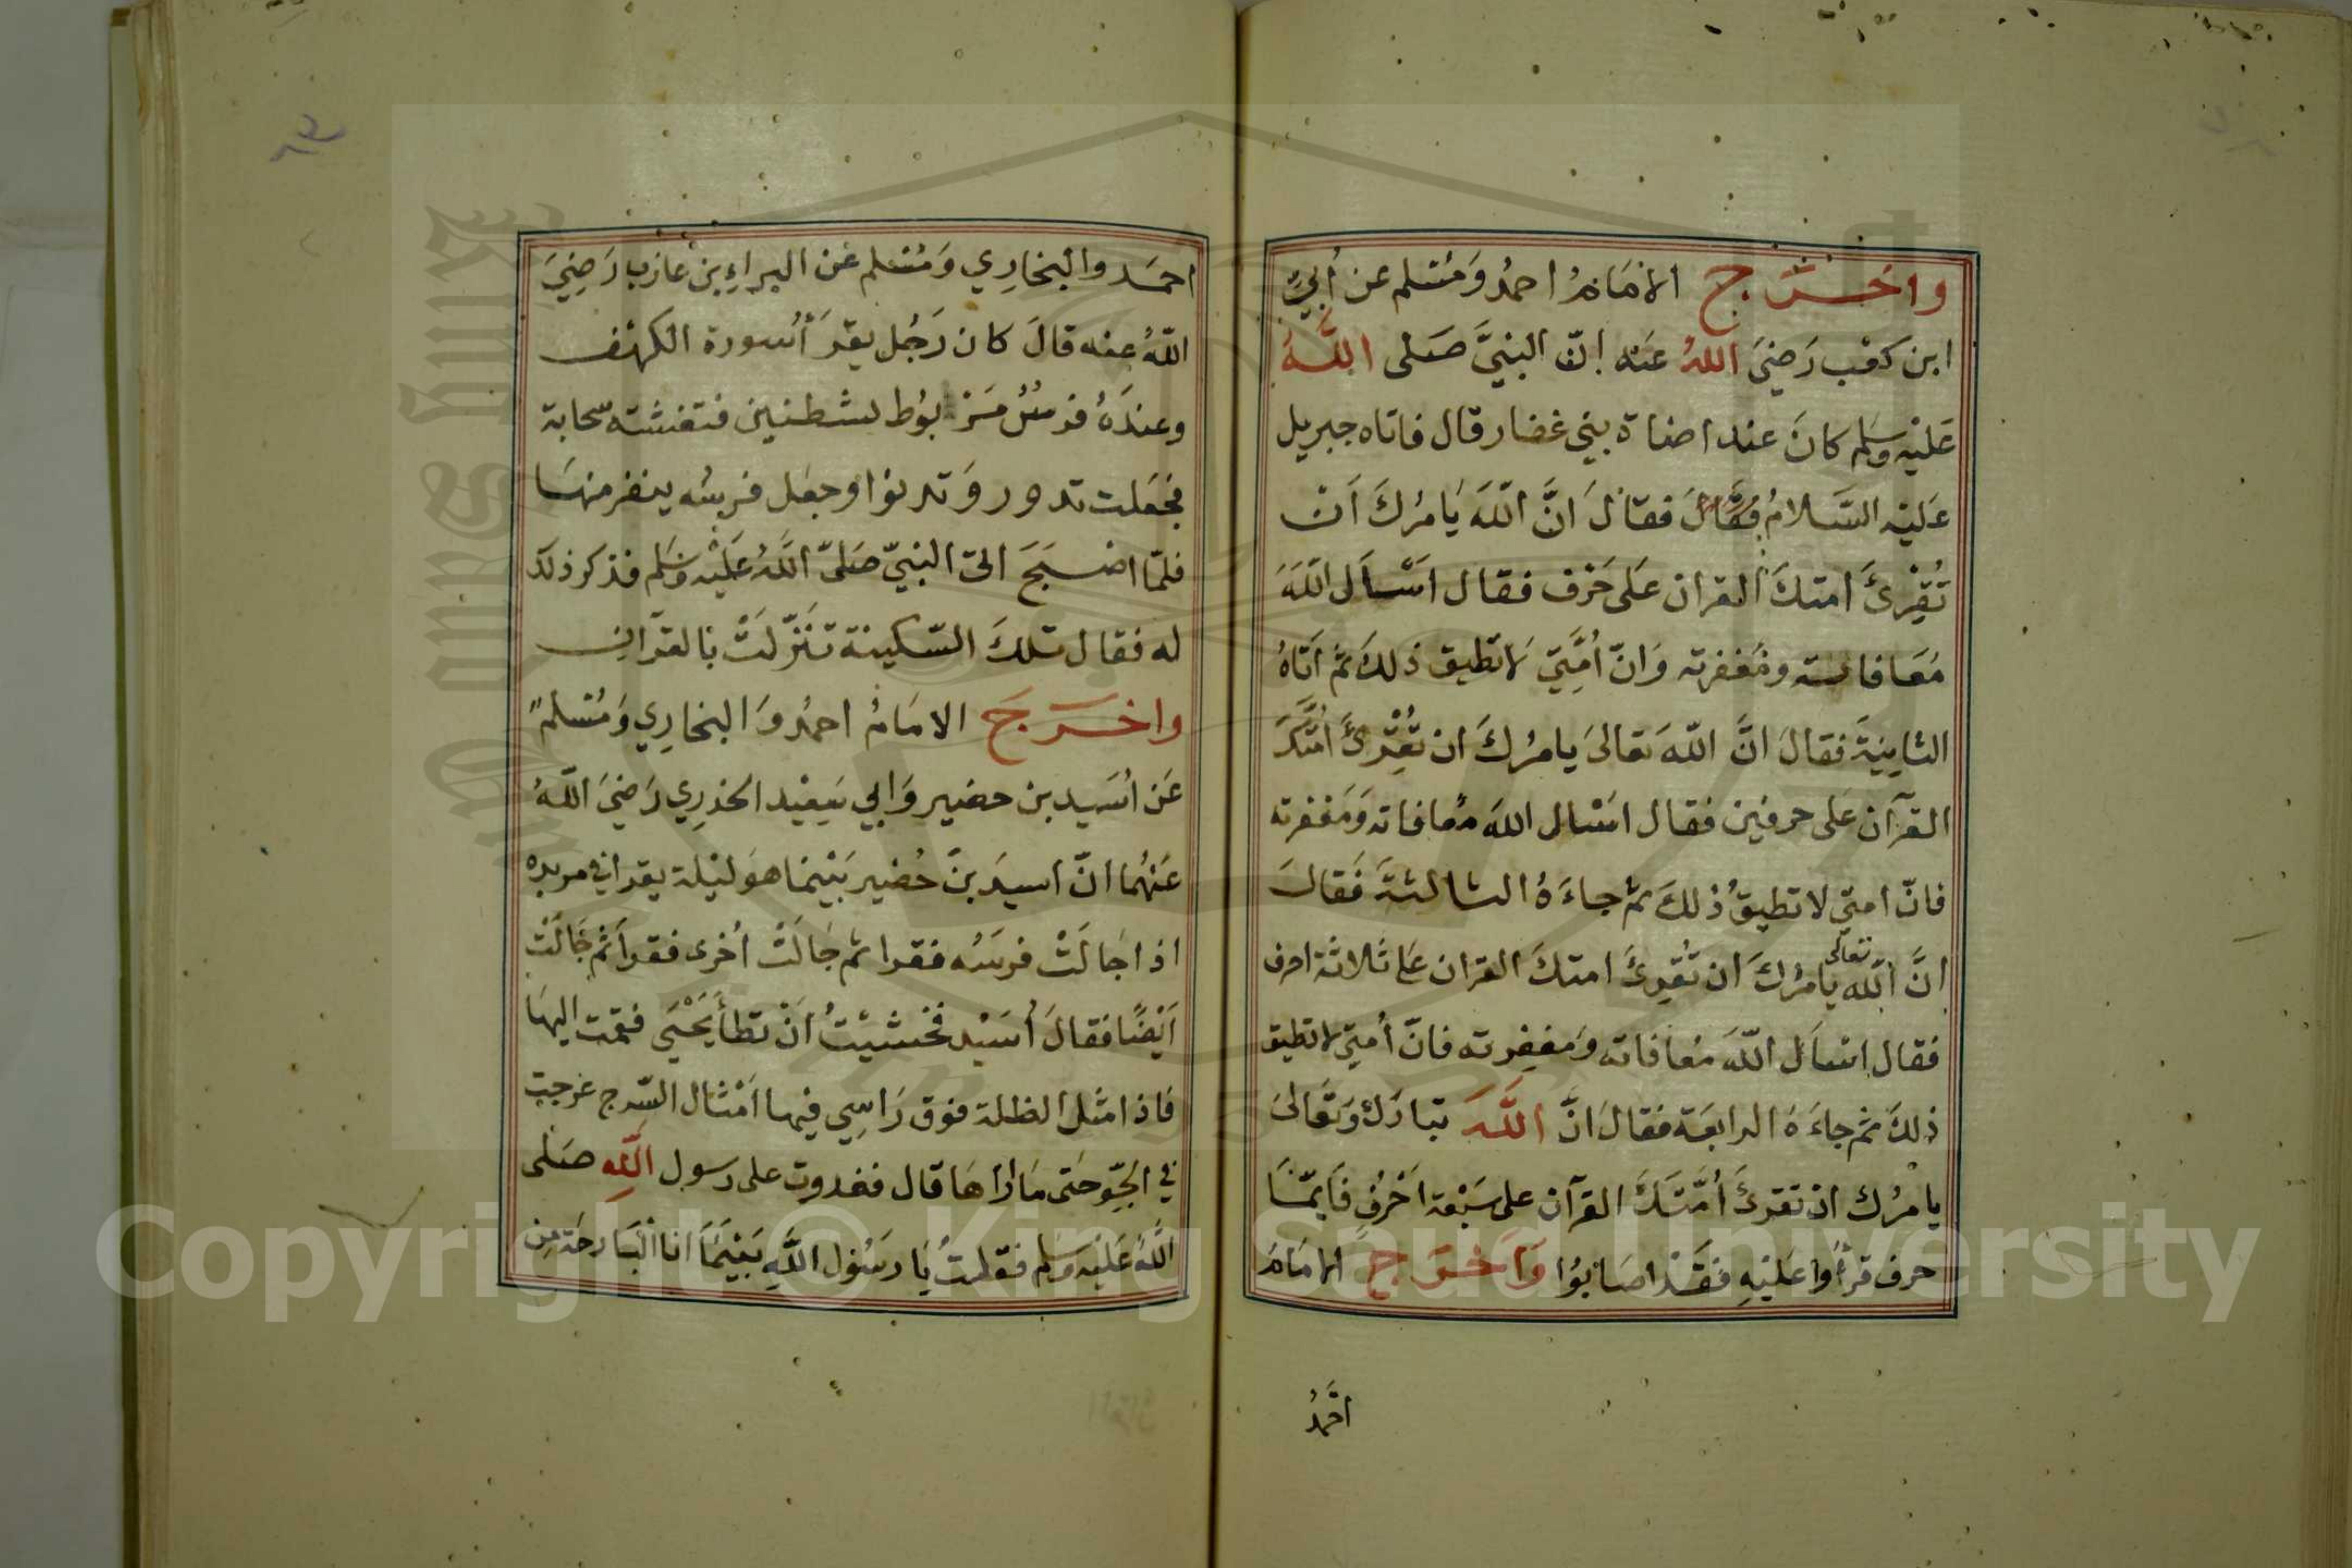 واخرج الامام احمد ومسلم عن أبيّ
ابن كعب رَضيَ اللهُ عَنه انّ النبيَّ صَلى اللَّهُ
عَليْه وسَلم كانَ عند اضاة بني غفار قال فاتاه جبريل
عَليْه السَّلامُ فقال فقالَ انَّ اللّهَ يَامرُكَ اَنْ
تُقِرْئَ امتكَ القران عَلى حَرْف فقال اسْأل اللّهَ
مُعَافاته ومَغفرته وَانّ اُمَّتِيْ لا تطيق ذلكَ ثم اتاهُ
الثانِيَةَ فقالَ انَّ اللّهَ تعالىَ يامرُكَ ان تُقْرِئَ اُمَّتكَ
القرآن عَلى حرفين فقال اسْال اللهَ مُعافاته وَمَغفرته
فانّ امتي لا تطيقُ ذلكَ ثم جاءَهُ الثالثةَ فَقالَ
انَّ اللّه تعالى يامرُكَ ان تُقرِئَ امتكَ القران عَلى ثلاثة احرف
فقال اسْأل اللّهَ مُعافاته وَمغفِرته فانّ اُمتِي لا تطيق
ذلكَ ثم جاءَهُ الرابعَة فقالَ انَّ اللَّهَ تبارَكَ وَتَعَالىَ
يامرُك ان تقرئَ اُمَّتَكَ القرآن على سَبْعة اَحْرُفٍ فَايّمَا
حرف قرأوا عَليْهِ فقَدْ اصَابُوا وَاَخرَج الامَامُ
احمدُ
احمَد والبخارِي وَمُسْلم عَن البراءِ بن عازب رَضِيَ
اللّهُ عنه قالَ كان رَجُل يقرَأ سُورة الكهْف
وعندَهُ فرسٌ مَرْبوُط بشطنين فتغشته سّحابة
فجَعَلت تدور وَتدنوا وجعَل فرسُه ينفر منهَا
فلمّا اصْبَحَ اتىَ النبيّ صَلىّ اللَّهُ عَليْه وسَلم فذكر ذلكَ
له فقال تلكَ السّكينة تنَزّلتْ بالقرآن
واخرَجَ الامَامُ احمدُ وَالبخارِي وَمُسْلم
عَن اُسَيد بن حضير وَابي سَعِيْد الخدرِي رَضيَ اللّهُ
عَنهُما انّ اسيدَ بنَ حُضير بَيْنَما هوَ ليْلة يقرا في مربده
اذا جَالَتْ فرسُه فقرا ثم جَالتْ اُخرى فقرأ ثم جَالتْ
اَيْضًا فقالَ اُسَيْد فخشيْتُ اَنْ تطأ يَحْيَى فقمت اليهَا
فاذا مثل الظلة فوق رَاسِي فيها اَمْثال السّرج عرجت
في الجَوّ حَتى مَا اراهَا قال فغدوت على رسول اللّهِ صَلى
اللّهُ عَليْه وَسَلم فقلتُ يَا رسُول اللّهِ بَيْنَمَا انا البَارحَة مِن